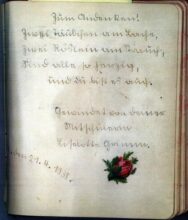 Zum Andenken!
Zwei Täubchen am Dache,
Zwei Röslein am Strauch,
Sind alle so herzig,
und Du bist es auch.
Gewidmet von deiner
Mitschülerin
Liselotte Grimm.
den 21. 4. 1938.